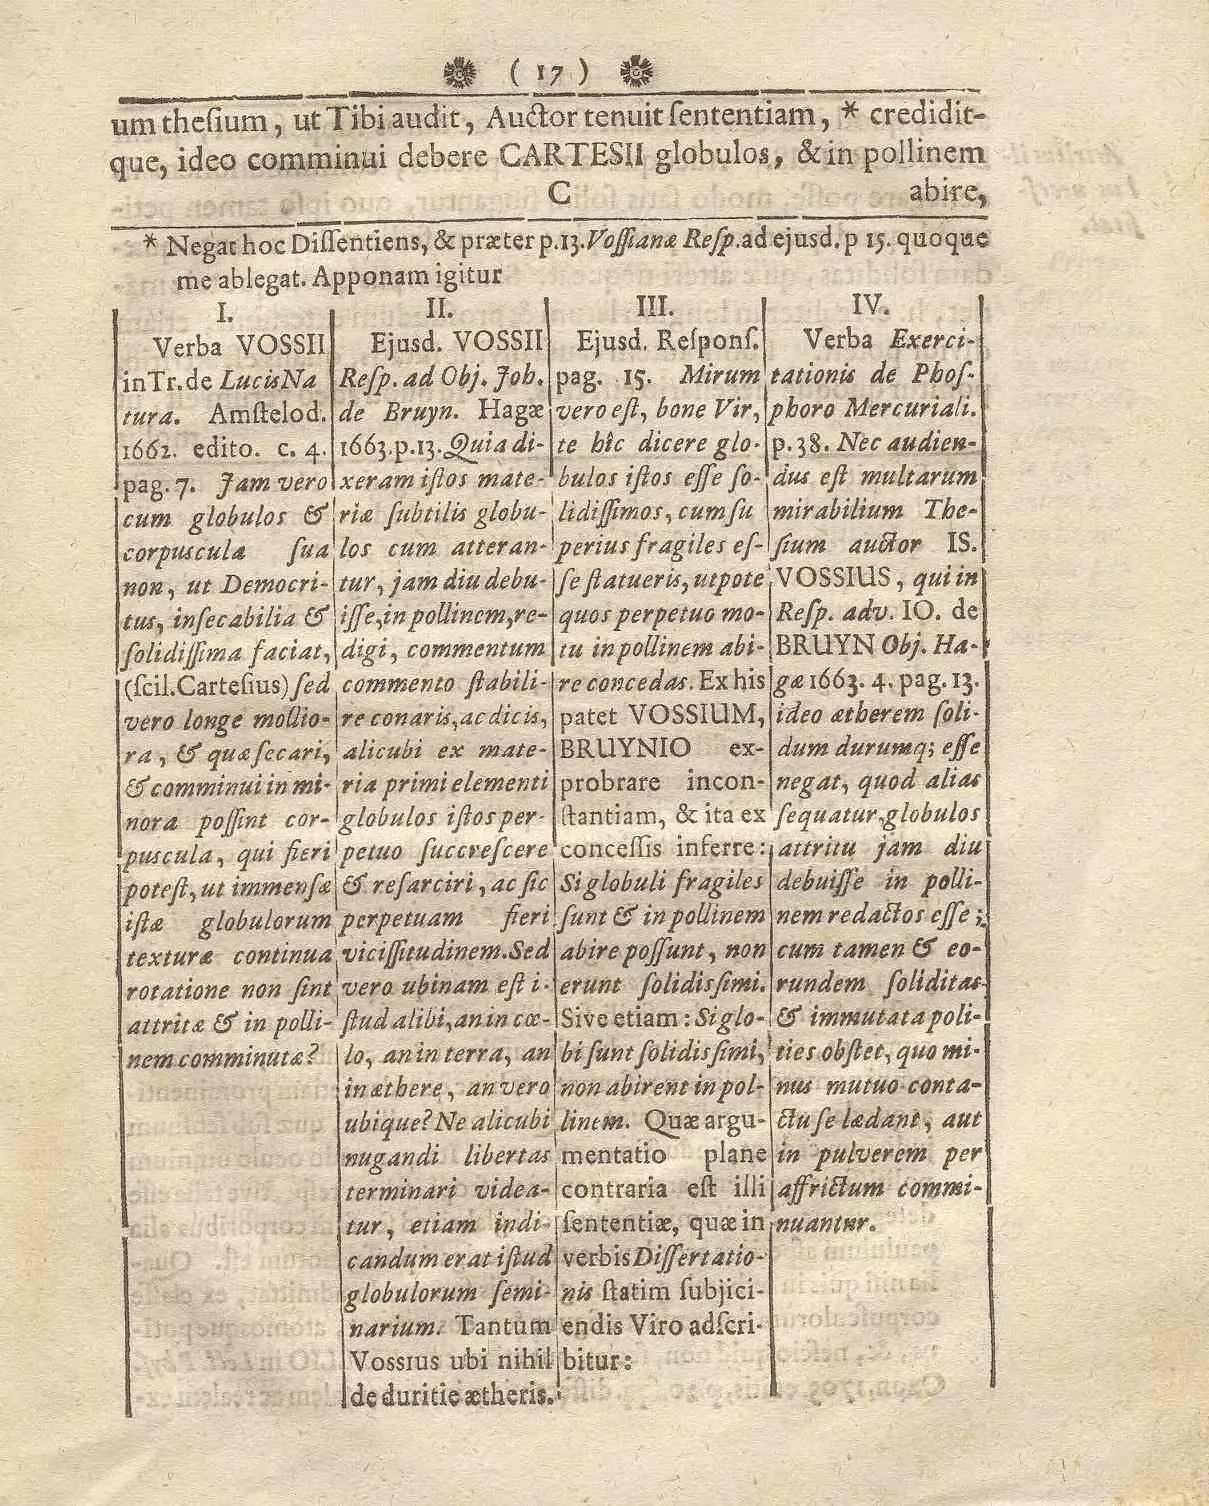 ( 17 )
um theſium, ut Tibi audit, Auctor tenuit ſententiam, * credidit-
que, ideo comminui debere CARTESII globulos, & in pollinem
C abire,
* Negat hoc Diſſentiens, & præter p.13. Voſſianæ Reſp. ad ejusd. p 15. quoque
me ablegat. Apponam igitur
I.
Verba VOSSII
in Tr. de Lucis Na
tura. Amſtelod.
1662. edito. c. 4.
pag. 7. Jam vero
cum globulos &
corpuscula ſua
non, ut Democri-
tus, inſecabilia &
ſolidiſſima faciat,
(ſcil. Carteſius) ſed
vero longe mollio-
ra, & quæ ſecari,
& comminui in mi-
nora poſſint cor-
puscula, qui fieri
poteſt, ut immenſæ
iſtæ globulorum
texturæ continua
rotatione non ſint
attritæ & in polli-
nem comminutæ?
II.
Ejusd. VOSSII
Reſp. ad Obj. Joh.
de Bruyn. Hagæ
1663. p. 13. Quia di-
xeram iſtos mate-
riæ ſubtilis globu-
los cum atteran-
tur, jam diu debu-
iſſe, in pollinem, re-
digi, commentum
commento ſtabili-
re conaris, ac dicis,
alicubi ex mate-
ria primi elementi
globulos iſtos per-
petuo ſuccreſcere
& reſarciri, ac ſic
perpetuam fieri
viciſſitudinem. Sed
vero ubinam eſt i-
ſtud alibi, an in cœ-
lo, an in terra, an
in æthere, an vero
ubique? Ne alicubi
nugandi libertas
terminari videa-
tur, etiam indi-
candum erat iſtud
globulorum ſemi-
narium. Tantum
Vossius ubi nihil
de duritie ætheris.
III.
Ejusd. Reſponſ.
pag. 15. Mirum
vero eſt, bone Vir,
te hîc dicere glo-
bulos iſtos eſſe ſo-
lidiſſimos, cum ſu
perius fragiles eſ-
ſe ſtatueris, utpote
quos perpetuo mo-
tu in pollinem abi-
re concedas. Ex his
patet VOSSIUM,
BRUYNIO ex-
probrare incon-
ſtantiam, & ita ex
conceſſis inferre:
Si globuli fragiles
ſunt & in pollinem
abire poſſunt, non
erunt ſolidisſimi.
Sive etiam: Si glo-
bi ſunt ſolidisſimi,
non abirent in pol-
linem. Quæ argu-
mentatio plane
contraria eſt illi
ſententiæ, quæ in
verbis Diſſertatio-
nis ſtatim ſubjici-
endis Viro adſcri-
bitur:
IV.
Verba Exerci-
tationis de Phoſ-
phoro Mercuriali.
p. 38. Nec audien-
dus eſt multarum
mirabilium The-
ſium auctor IS.
VOSSIUS, qui in
Reſp. adv. IO. de
BRUYN Obj. Ha-
gæ 1663. 4. pag. 13.
ideo ætherem ſoli-
dum durumq; eſſe
negat, quod alias
ſequatur, globulos
attritu jam diu
debuiſſe in polli-
nem redactos eſſe;
cum tamen & eo-
rundem ſoliditas
& immutata poli-
ties obſtet, quo mi-
nus mutuo conta-
ctu ſe lædant, aut
in pulverem per
affrictum commi-
nuantur.